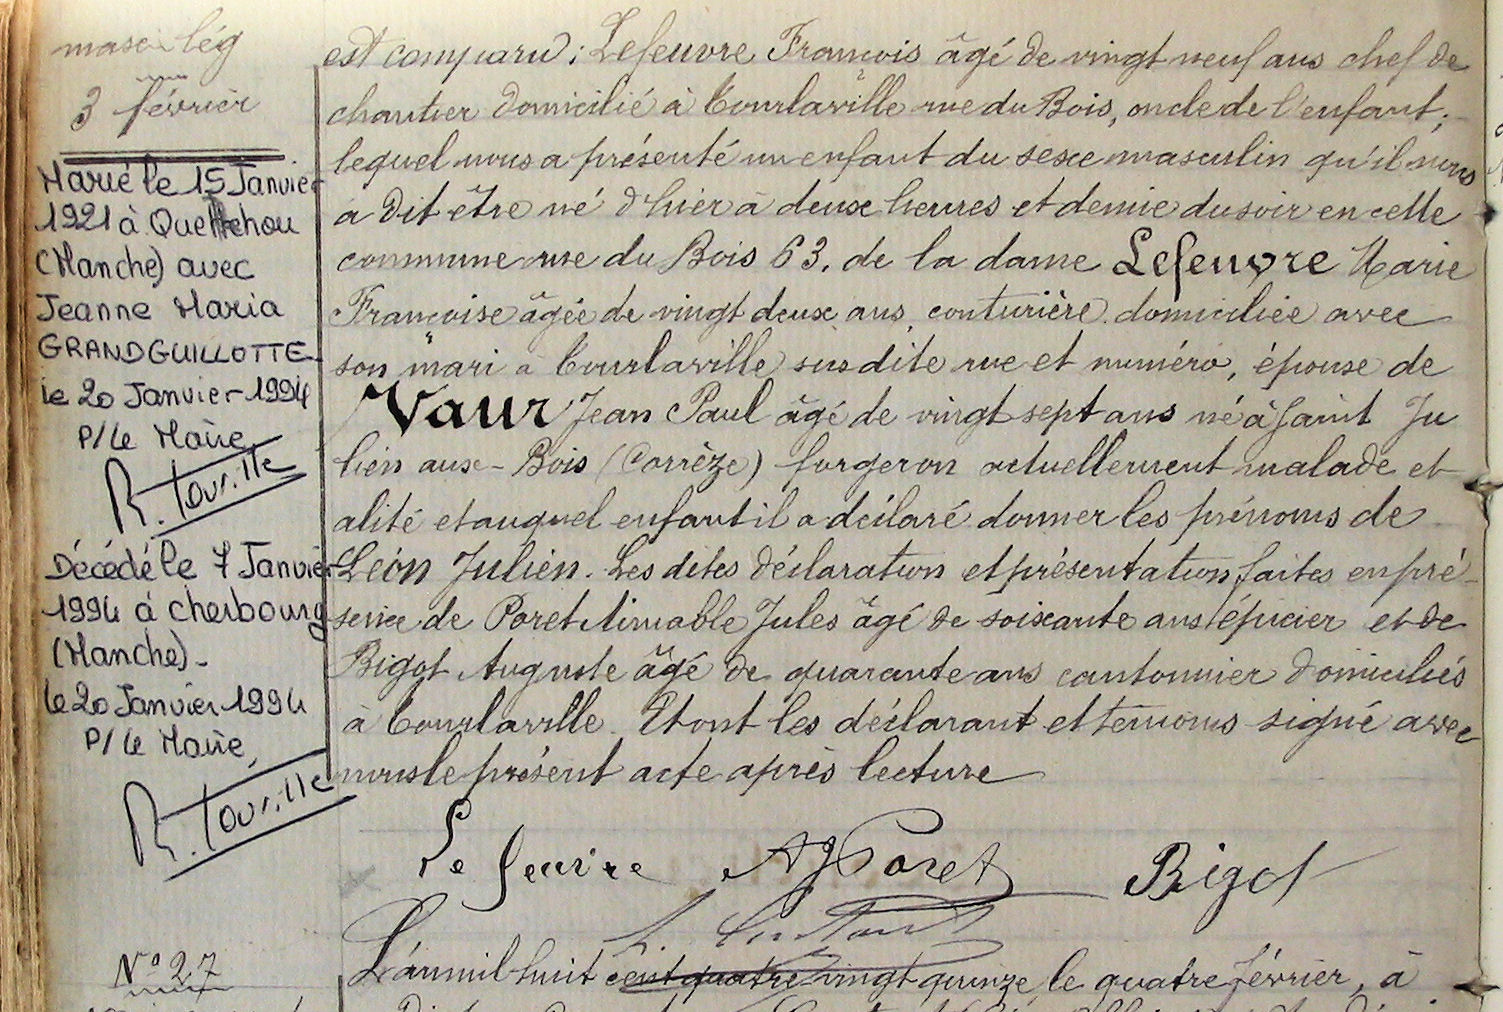 masc lég
3 février
Marié le 15 Janvier
1921 à Quettehou
(Manche) avec
Jeanne Maria
GRANDGUILLOTTE
le 20 Janvier 1994
P/Le Maire
R. Touville
Décédé le 7 Janvier
1994 à Cherbourg
(Manche)-
le 20 Janvier 1994
P/Le Maire,
R. Touville
N° 27
est comparu : Lefeuvre François âgé de vingt neuf ans chef de
chantier domicilié à Tourlaville rue du Bois, oncle de l'enfant,
lequel nous a présenté un enfant du sexe masculin qu'il nous
a dit être né d'hier à deux heures et demie du soir en cette
commune rue du Bois 63. de la dame Lefeuvre Marie
Françoise âgée de vingt deux ans couturière domiciliée avec
son mari à Tourlaville susdite rue et numéro, épouse de
Vaur Jean Paul âgé de vingt sept ans né à Saint Ju
lien aux-Bois (Corrèze) forgeron actuellement malade et
alité et auquel enfant il a déclaré donner les prénoms de
Léon Julien. Les dites déclaration et présentation faites en pré-
sence de Poret Aimable Jules âgé de soixante ans épicier et de
Bigot Auguste âgé de quarante ans cantonnier domiciliés
à Tourlaville. Et ont les déclarant et témoins signé avec
nous le présent acte après lecture
Lefeuvre AJ Poret Bigot
L'an mil huit cent quatre vingt quinze le quatre février, à